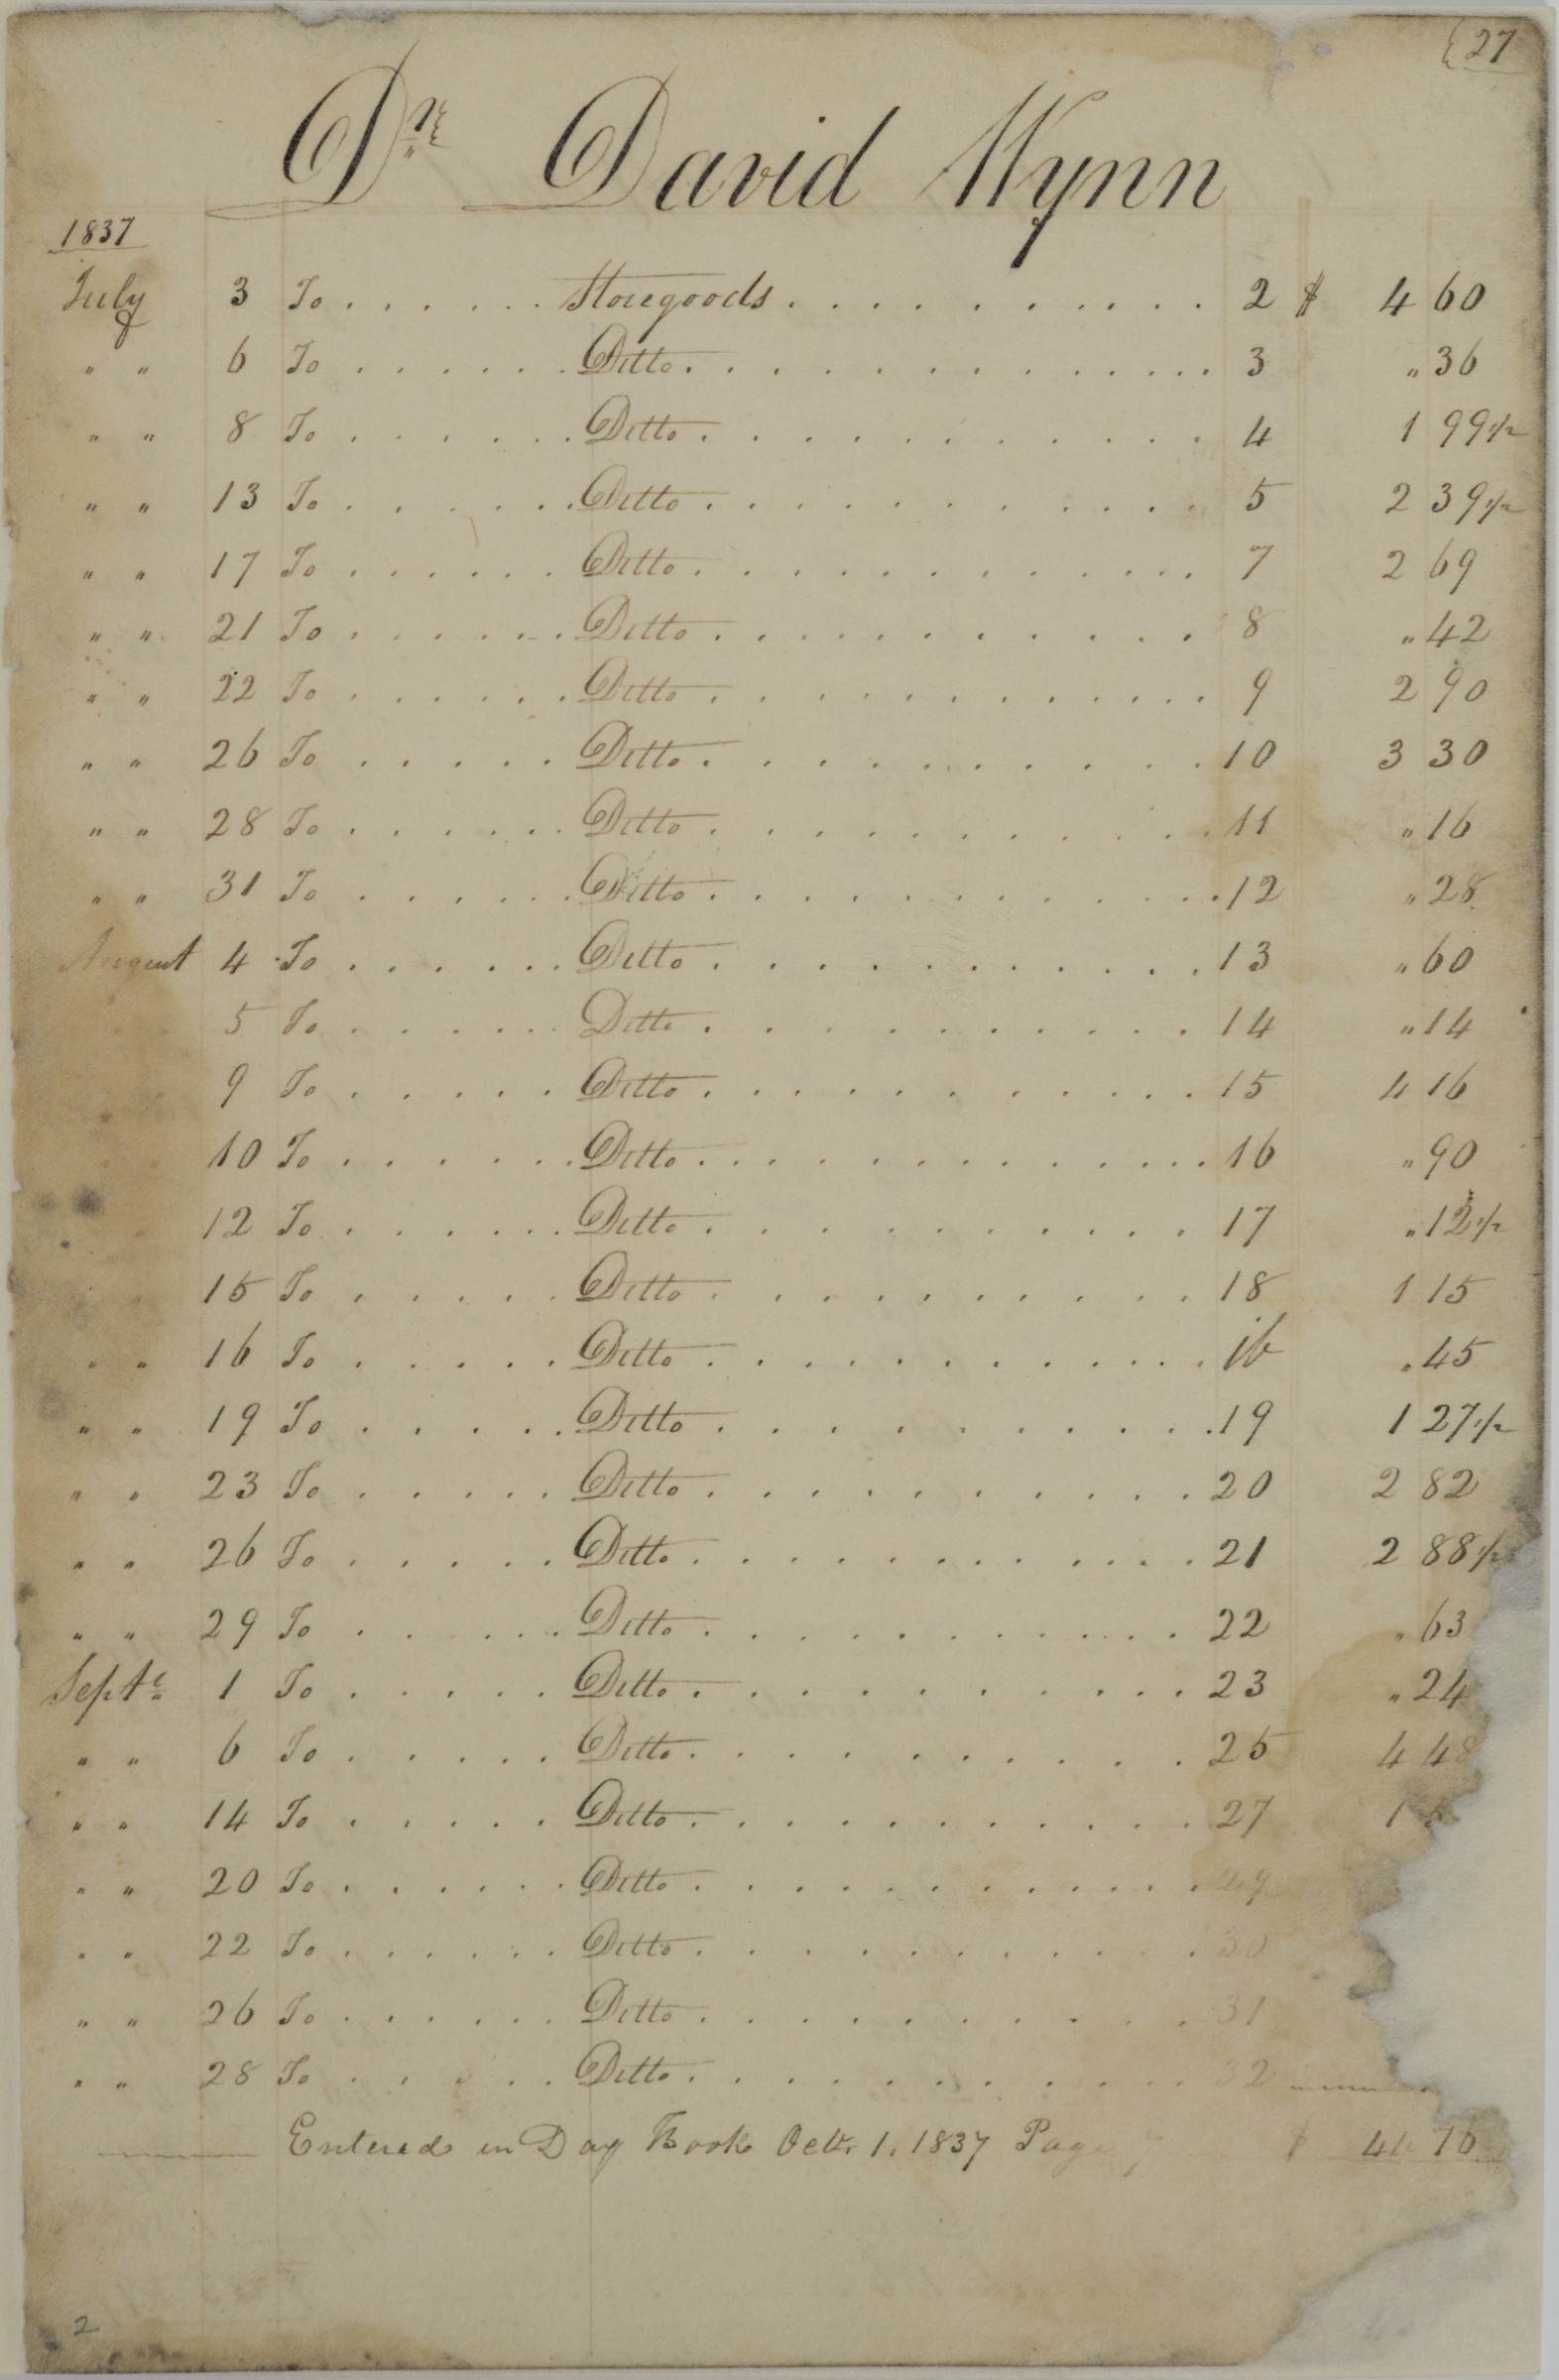 27
Dr. David Wynn
1837
July 3 To . . . . . . Storegoods . . . . . . . . . . . 2 $ 4 60
" " 6 To . . . . . . Ditto . . . . . . . . . . . 3 " 36
" " 8 To . . . . . . Ditto . . . . . . . . . . . 4 1 99 1/2
" " 13 To . . . . . . Ditto . . . . . . . . . . . 5 2 39 1/2
" " 17 To . . . . . . Ditto . . . . . . . . . . . 7 2 69
" " 21 To . . . . . . Ditto . . . . . . . . . . . 8 " 42
" " 22 To . . . . . . Ditto . . . . . . . . . . . 9 2 90
" " 26 To . . . . . . Ditto . . . . . . . . . . . 10 3 30
" " 28 To . . . . . . Ditto . . . . . . . . . . . 11 " 16
" " 31 To . . . . . . Ditto . . . . . . . . . . . 12 " 28
August 4 To . . . . . . Ditto . . . . . . . . . . . 13 " 60
5 To . . . . . . Ditto . . . . . . . . . . . 14 " 14
9 To . . . . . . Ditto . . . . . . . . . . . 15 4 16
10 To . . . . . . Ditto . . . . . . . . . . . 16 " 90
12 To . . . . . . Ditto . . . . . . . . . . . 17 " 12 1/2
15 To . . . . . . Ditto . . . . . . . . . . . 18 1 15
" " 16 To . . . . . . Ditto . . . . . . . . . . . ib " 45
" " 19 To . . . . . . Ditto . . . . . . . . . . . 19 1 27 1/2
" " 23 To . . . . . . Ditto . . . . . . . . . . . 20 2 82
" " 26 To . . . . . . Ditto . . . . . . . . . . . 21 2 88 1/2
" " 29 To . . . . . . Ditto . . . . . . . . . . . 22 " 63
Septr 1 To . . . . . . Ditto . . . . . . . . . . . 23 " 24
" " 6 To . . . . . . Ditto . . . . . . . . . . . 25 4 48
" " 14 To . . . . . . Ditto . . . . . . . . . . . 27 1
" " 20 To . . . . . . Ditto . . . . . . . . . . . 29
" " 22 To . . . . . . Ditto . . . . . . . . . . . 30
" " 26 To . . . . . . Ditto . . . . . . . . . . . 31
" " 28 To . . . . . . Ditto . . . . . . . . . . . 32
Entered in Day Book Octr. 1. 1837 Page $ 76
2